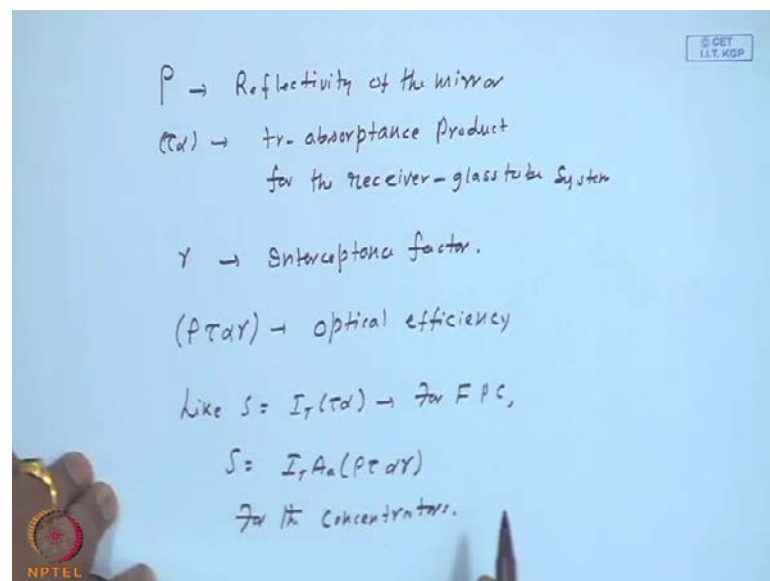 © CET
I.I.T. KGP
ρ → Reflectivity of the mirror
(τα) → tr- absorptance product
for the receiver - glass tube system
γ → Interceptance factor.
(ρταγ) → optical efficiency
Like S = I_T (τα) → For FPC,
S = I_T A_a (ρταγ)
For the concentrators.
NPTEL